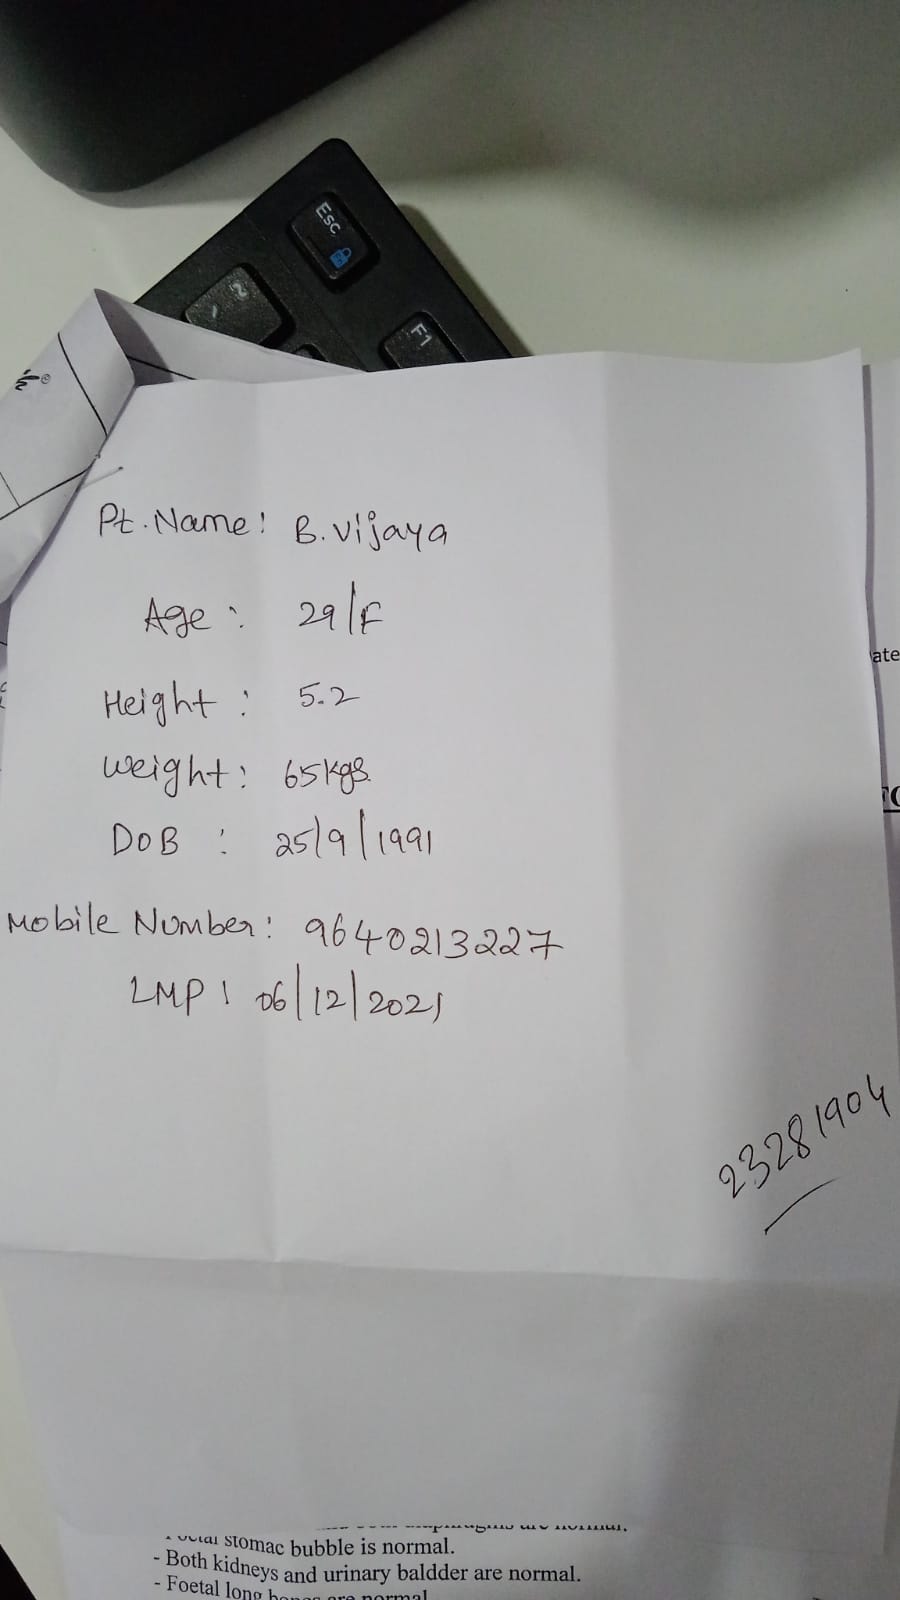 Esc
F1
2
Pt. Name: B. Vijaya
Age: 29/F
Height: 5.2
Weight: 65kgs.
DOB : 25/9/1991
Mobile Number: 9640213227
LMP: 06/12/2021
23281904
ate
stomac bubble is normal.
- Both kidneys and urinary baldder are normal.
- Foetal long bones are normal